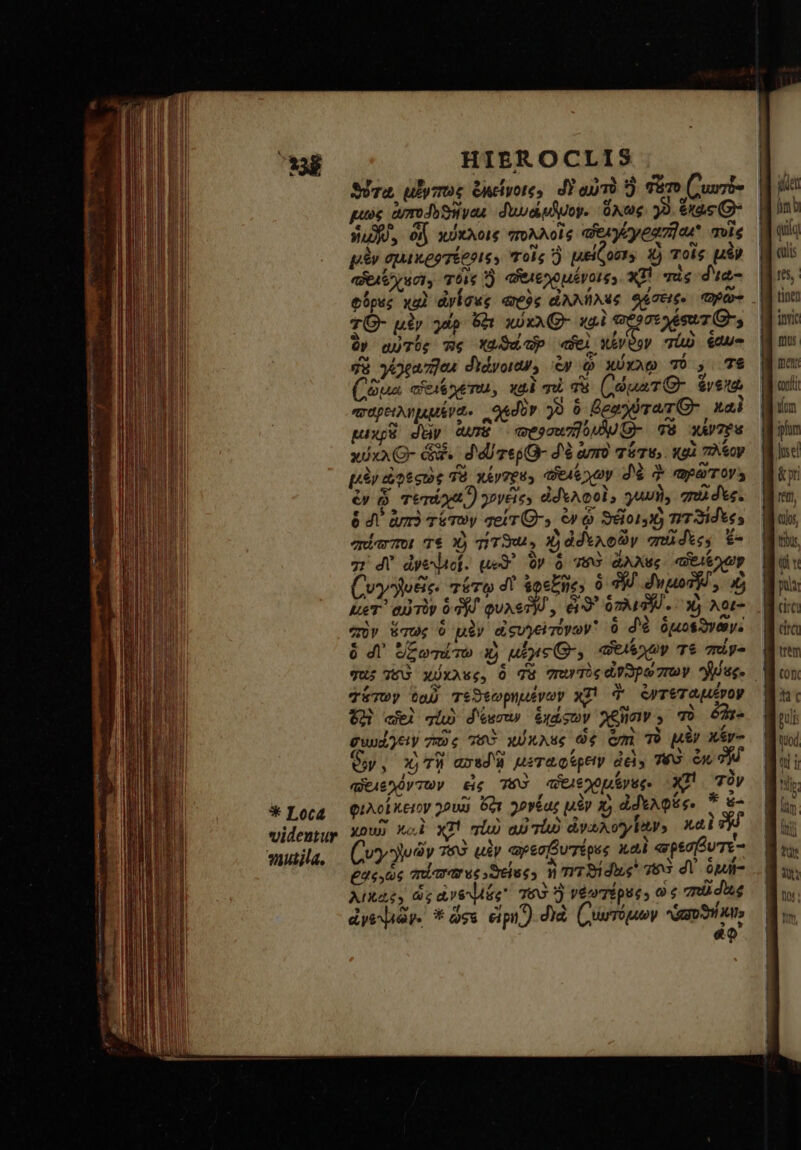 238
HIEROCLIS
θύτα μέντως ἐκείνοις, δι' αὐτὸ δὲ τοῦτο συντό-
μως ἀποδοθῆναι δυνάμενον. ὅλως γὰρ ἕκαστος
ἡμῶν, οἷον κύκλοις πολλοῖς περιγέγραπται· τοῖς
μὲν σμικροτέροις, τοῖς δὲ μείζοσι, καὶ τοῖς μὲν
περιέχουσι, τοῖς δὲ περιεχομένοις, κατὰ τὰς δια-
φόρους καὶ ἀνίσους πρὸς ἀλλήλους σχέσεις. πρῶ-
τος μὲν γάρ ἐστι κύκλος καὶ προσεχέστατος,
ὃν αὐτός τις καθάπερ περὶ κέντρον τὴν ἑαυ-
τοῦ γέγραπται διάνοιαν, ἐν ᾧ κύκλῳ τό, τε
σῶμα περιέχεται, καὶ τὰ τοῦ σώματος ἕνεκα
παρειλημμένα. σχεδὸν γὰρ ὁ βραχύτατος καὶ
μικροῦ δεῖν αὐτοῦ προσαπτόμενος τοῦ κέντρου
κύκλος οὗτος. δεύτερος δὲ ἀπὸ τούτου, καὶ πλέον
μὲν ἀφεστὼς τοῦ κέντρου, περιέχων δὲ τὸν πρῶτον,
ἐν ᾧ τετάχαται γονεῖς, ἀδελφοὶ, γυνὴ, παῖδες.
ὁ δ' ἀπὸ τούτων τρίτος, ἐν ᾧ θεῖοι, καὶ τιτθίδες,
πάπποι τε καὶ τίτθαι, καὶ ἀδελφῶν παῖδες, ἔ-
τι δ' ἀνεψιοί. μεθ' ὃν ὁ τοὺς ἄλλους περιέχων
συγγενεῖς. τούτῳ δ' ἐφεξῆς, ὁ τῶν δημοτῶν, καὶ
μετ' αὐτὸν ὁ τῶν φυλετῶν, εἶθ' ὁ πολιτῶν. καὶ λοι-
πὸν οὕτως ὁ μὲν ἀστυγειτόνων· ὁ δὲ ὁμοεθνῶν.
ὁ δ' ἐξωτάτω καὶ μέγιστος, περιέχων τε πάν-
τας τοὺς κύκλους, ὁ τοῦ παντὸς ἀνθρώπων γένους.
τούτων οὖν τεθεωρημένων κατὰ τὸν ἐντεταμένον
ἐστὶ περὶ τὴν δέουσαν ἑκάστων χρῆσιν, τὸ ἐπι-
συνάγειν πῶς τοὺς κύκλους ὡς ἐπὶ τὸ μὲν κέν-
τρον, καὶ τῇ σπουδῇ μεταφέρειν ἀεὶ, τοὺς ἐκ τῶν
περιεχόντων εἰς τοὺς περιεχομένους. κατὰ τὸν
φιλοίκειον γοῦν ἐστι γονέας μὲν καὶ ἀδελφούς. * οὐ-
κουῦ καὶ κατὰ τὴν αὐτὴν ἀναλογίαν, καὶ τῶν
συγγενῶν τοὺς μὲν πρεσβυτέρους καὶ πρεσβυτέ-
ρας, ὡς πάππους, θείους, ἢ τιτθίδας· τοὺς δ' ὁμή-
λικας, ὡς ἀνεψιούς· τοὺς δὲ νεωτέρους, ὡς παῖδας
ἀνεψιῶν. * ὥστε εἴρηται διὰ συντόμων ὑποθήκη,
ἀφ'
* Loca
videntur
mutila.